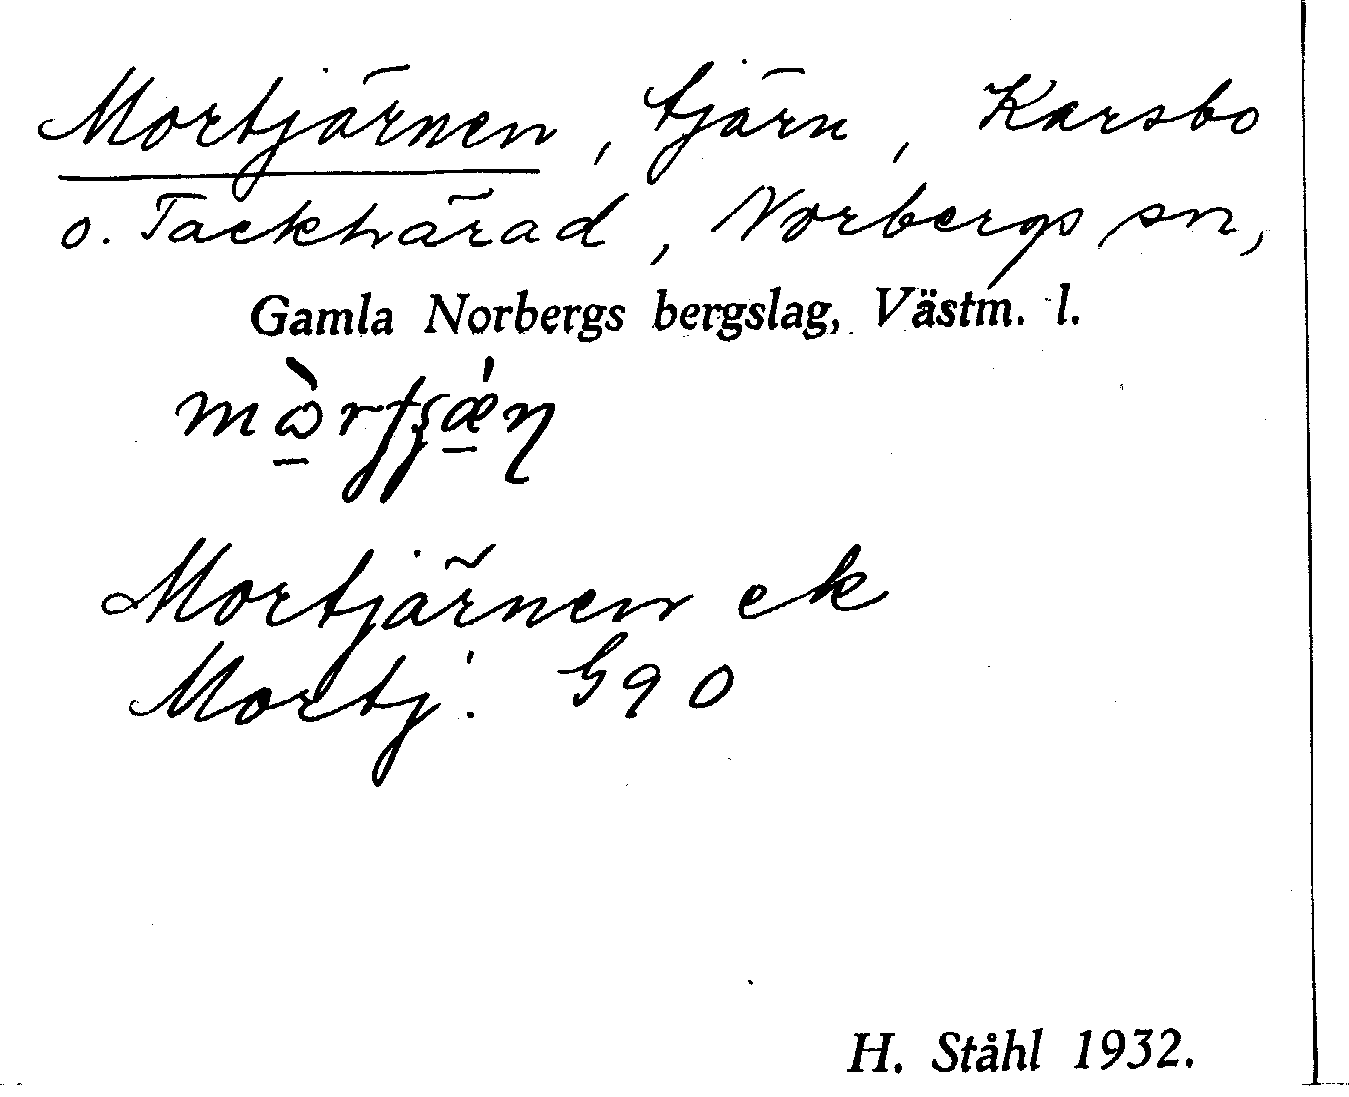 Mortjärnen, tjärn, Karsbo
o. Tackhärad, Norbergs sn,
Gamla Norbergs bergslag, Västm. l.
Mortjärnen ek
Mortj. G90
H. Ståhl 1932.